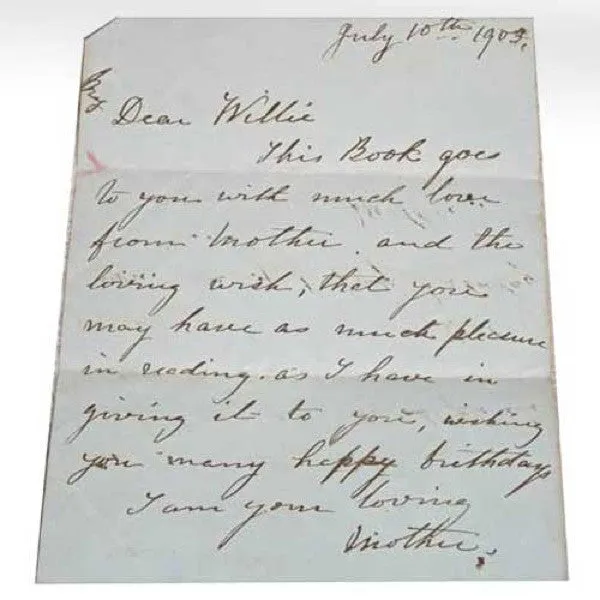 July 10th 1903.
Dear Willie
This Book goes
to you with much love
from Mother, and the
loving wish, that you
may have as much pleasure
in reading as I have in
giving it to you, wishing
you many happy birthdays
I am your loving
Mother.